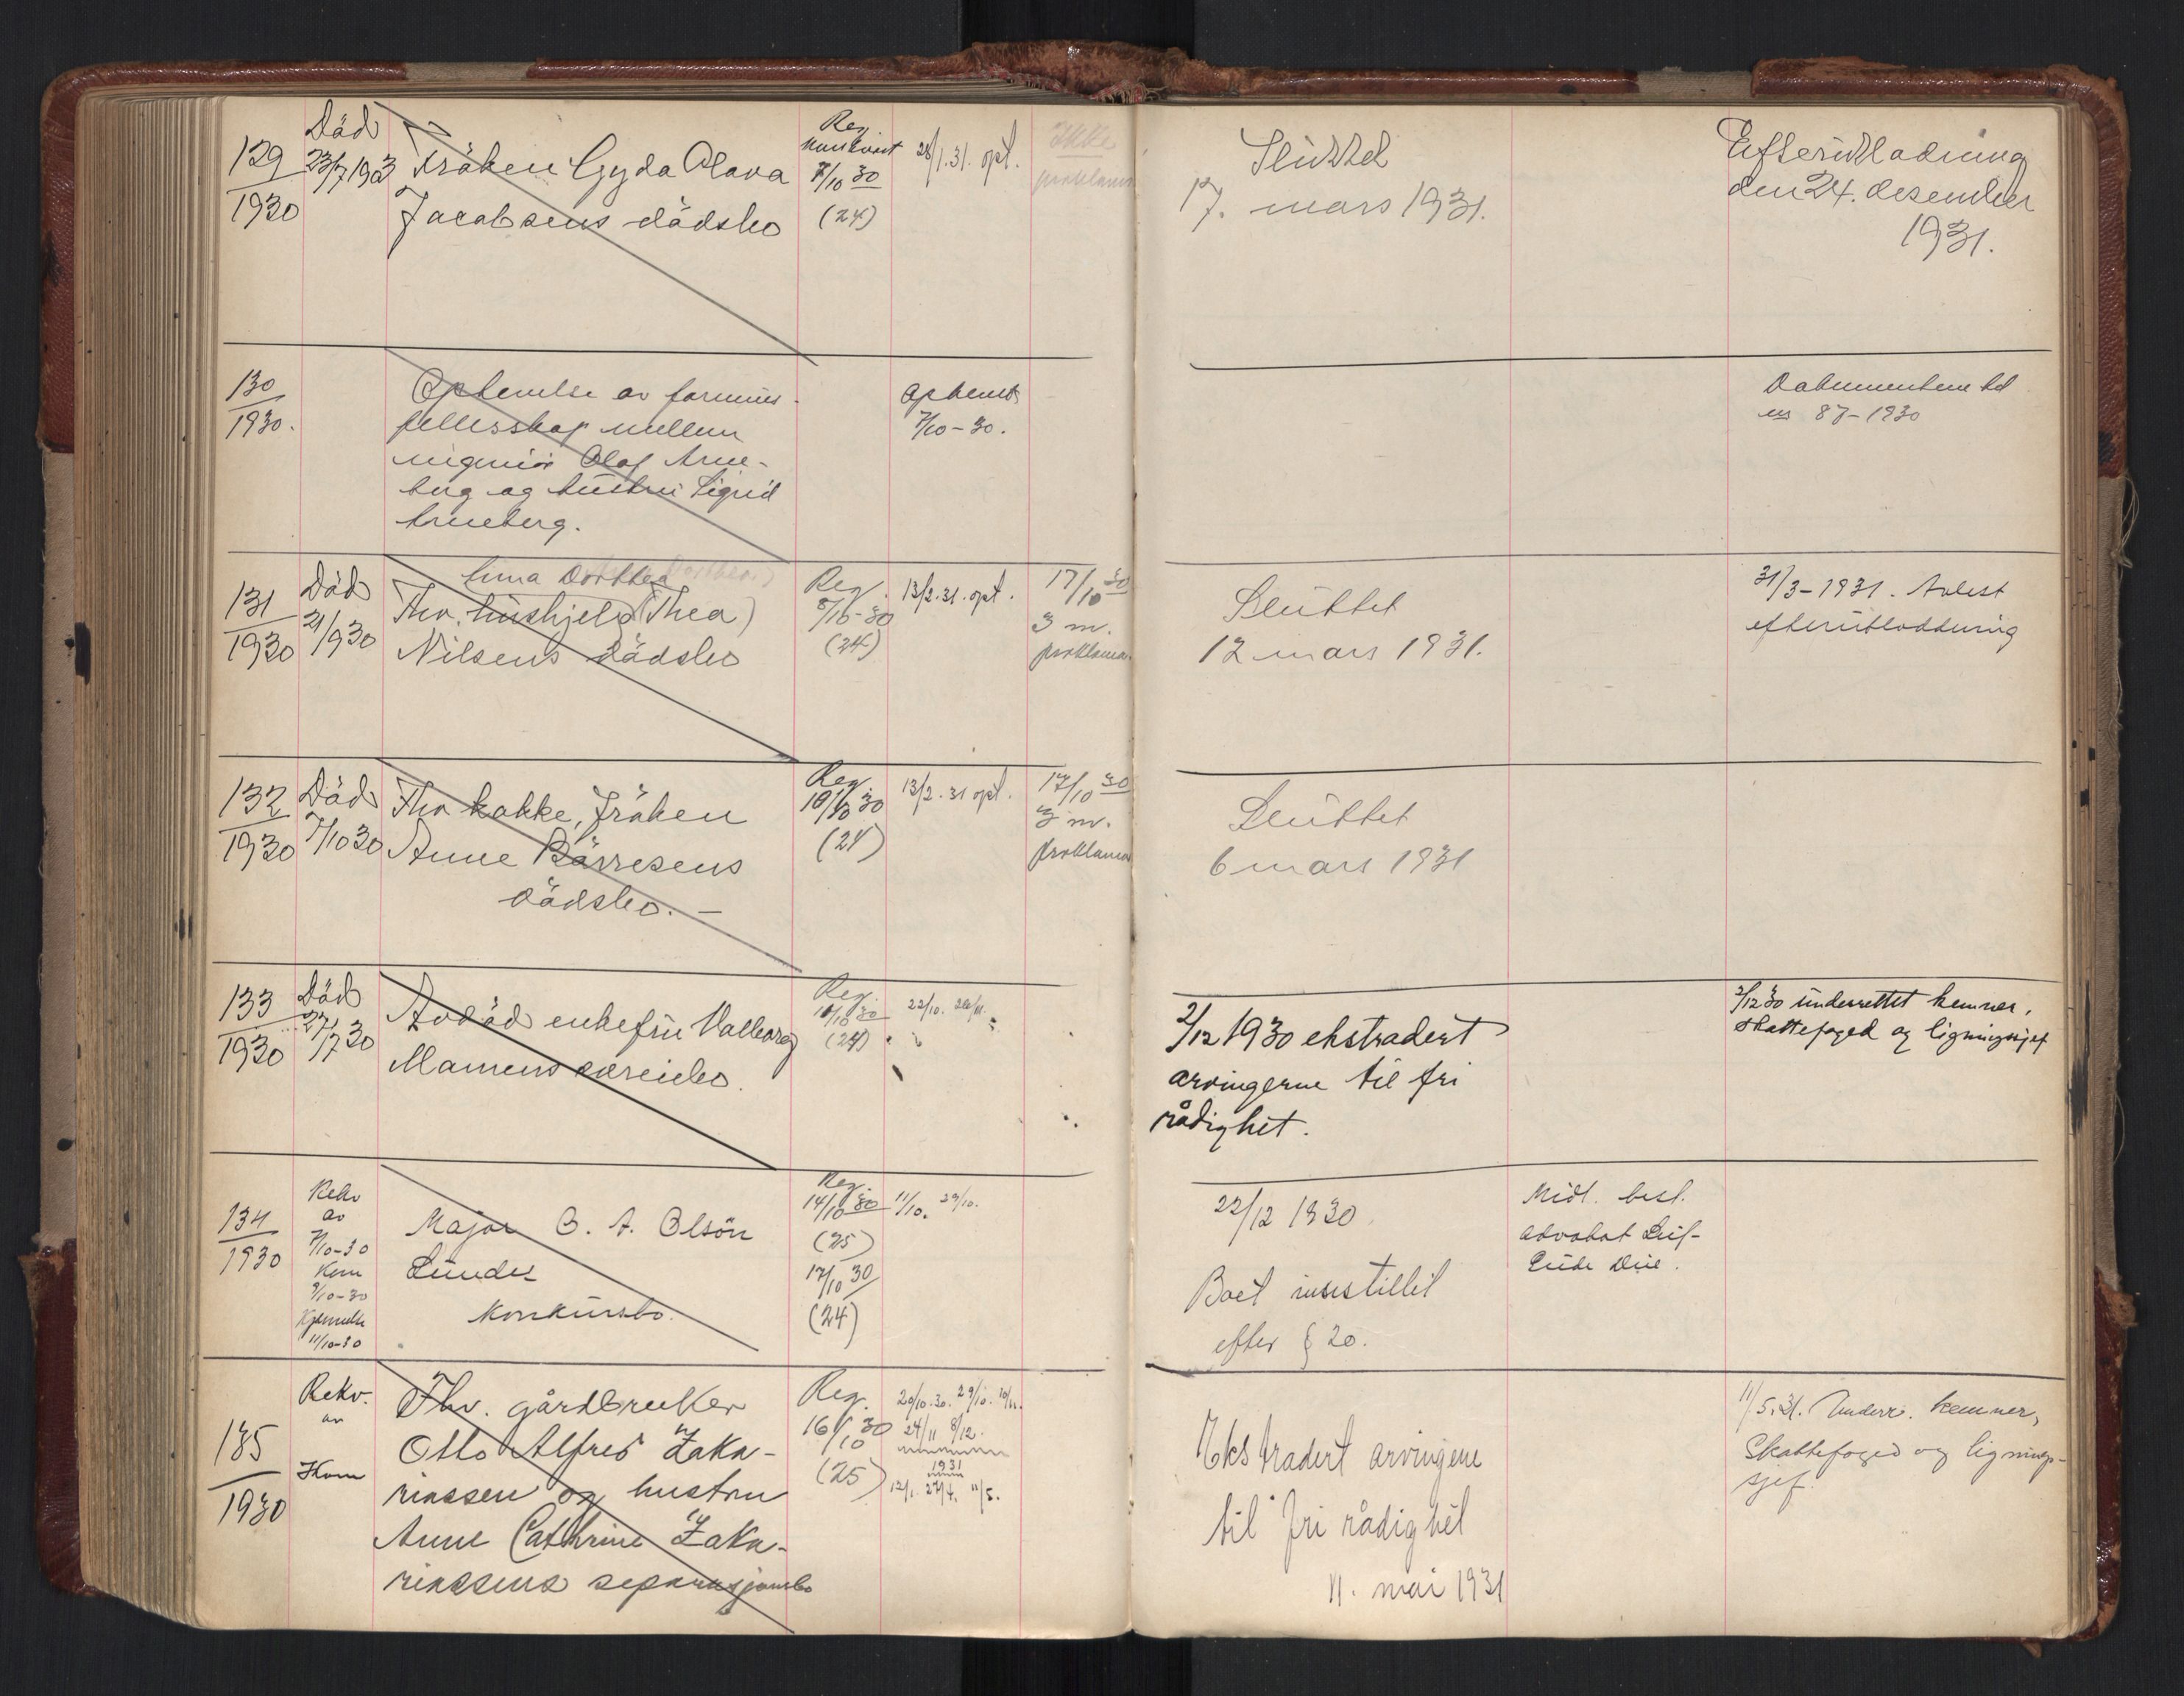 129
1930
Död
23/7 193
Fröken Gyda Olava
Jacobsens dödsbo
Reg.
7/10 30
(24)
28/1.31. opt.
Ikke
proklama
Sluttet
17. mars 1931.
Efterutlodning
den 24. desember
1931.
130
1930.
Ophevelse av formues-
fellesskap mellem
ingeniör Olaf Arne-
berg og hustru Sigrid
Arneberg.
Ophevet
7/10-30.
Dokumentene til
87-1930
131
1930
Död
21/9 30
Dorthea
Fhv. hushjelp (Thea)
Nilsens dödsbo
Reg.
8/10-30
(24)
13/2.31.opt.
17/10 30
3 m.
proklama
Sluttet
12 mars 1931.
31/3-1931. Avlest
efterutlodning
132
1930
Död
7/10 30
Fhv kokke, Fröken
Anne Börresens
dödsbo. —
Reg.
10/10 30
(24)
13/2.31 opt.
17/10 30
3 m.
proklama
Sluttet
6 mars 1931
133
1930
Död
27/7 30
Avdöd enkefru Valborg
Mamens
Reg.
10/10 30
(24)
22/10.
2/12 1930 ekstradert
arvingerne til fri
rådighet.
2/12 30 underrettet kemner,
skattefoged og ligningssjef
134
1930
Rekv
av
7/10-30
Kom
9/10-30
Kjennelse
11/10-30
Major O. A. Olsön
Lunde
konkursbo.
Reg.
14/10 30
(25)
17/10 30
(24)
11/10. 29/10.
22/12 1930
Boet innstillet
efter § 20.
Midl. best.
advokat Leif-
Due.
135
1930
Rekv.
av
Kom
Fhv. gårdbruker
Otto Alfred Zaka-
riassen og hustru
Anne Cathrine Zaka-
riassens separasjonsbo
Reg.
16/10 30
(25)
20/10.30. 29/10. 10/11.
24/11 8/12.
1931
12/1. 27/4. 11/5.
Ekstradert arvingene
til fri rådighet
11. mai 1931
11/5.31. Underr. kemner,
Skattefoged og lignings-
sjef.